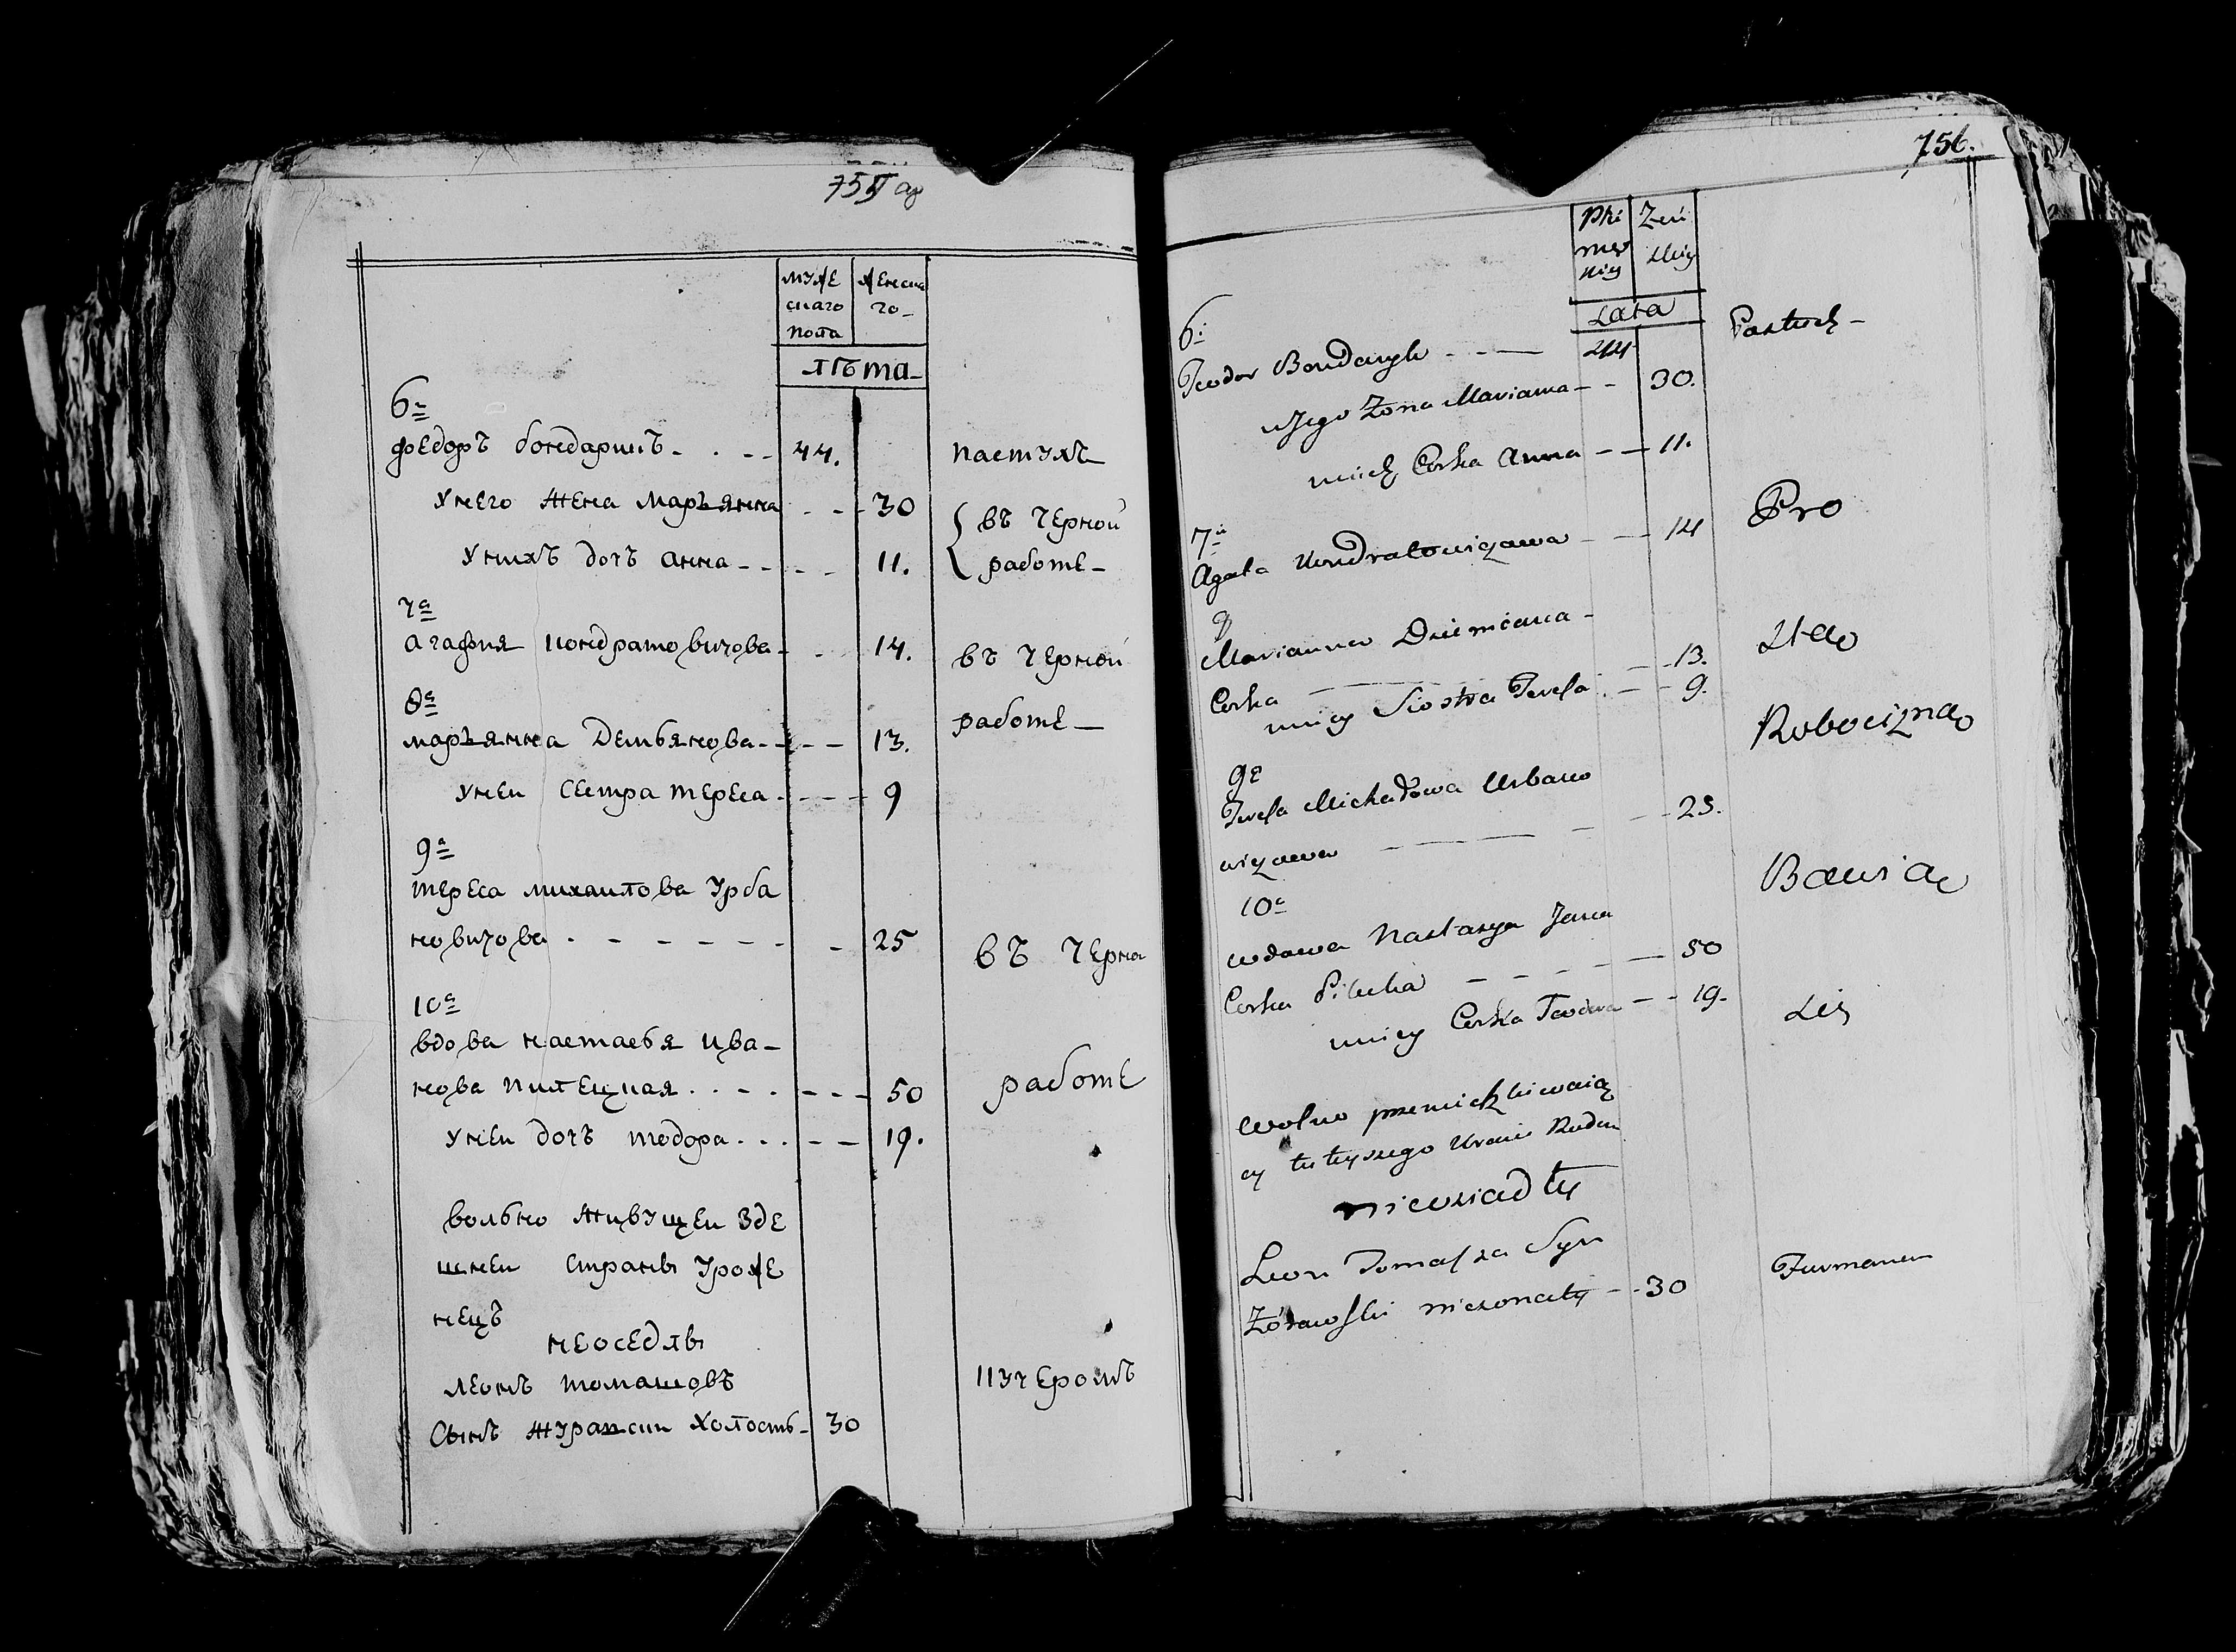 755 об
муже
скаго
пола
женска
го-
лѣта-
6а
федоръ бондарикъ - . - - 44. пастухъ
унего жена марьянна . - - 30 въ черной
унихъ дочъ анна - - - - 11. работе -
7а
агафия кондратовичова - . 14. въ черной
8а
работе -
марьянна Дембянова - - - - 13.
уней сестра тереса - - - - 9
9а
тереса михаилова урба
новичова . - - - - - - - 25 въ черна
10а
вдова настасья ива-
нова пилецкая . . - - - - - 50 работе
уней дочъ тодора . . . - - 19.
вольно живущеи зде
шнеи страны уроже
нецъ
неоседлы
леонъ томашовъ кучеромъ
сынъ журавски холостъ - 30
756.
męs
kiey
Zeń
skiey
Lata
6.
Teodor Bondaryk - - — 44 Pastuch -
Jego Żona Marianna - - 30.
unich Corka Anna - — 11.
7a
Agata Kondratowiczowa - — 14 Pro
8
Marianna Dziemianа -
Corka — - 13. Sta
uniey Siostra Teresa . - - 9.
Robocizna
9a
Teresa Michałowa Urbano
wiczowa — — - - 25.
10a
Bawią
wdowa Nastazya Jana
Corka Pilecka - - - - — 50
uniey Corka Teodora - - 19. się
Wolno pomieszkiwaią
cy tuteyszego Kraiu Rodu
nieosiadły
Leon Tomasza Syn
Żórawski nieżonaty - - 30 Furmanem